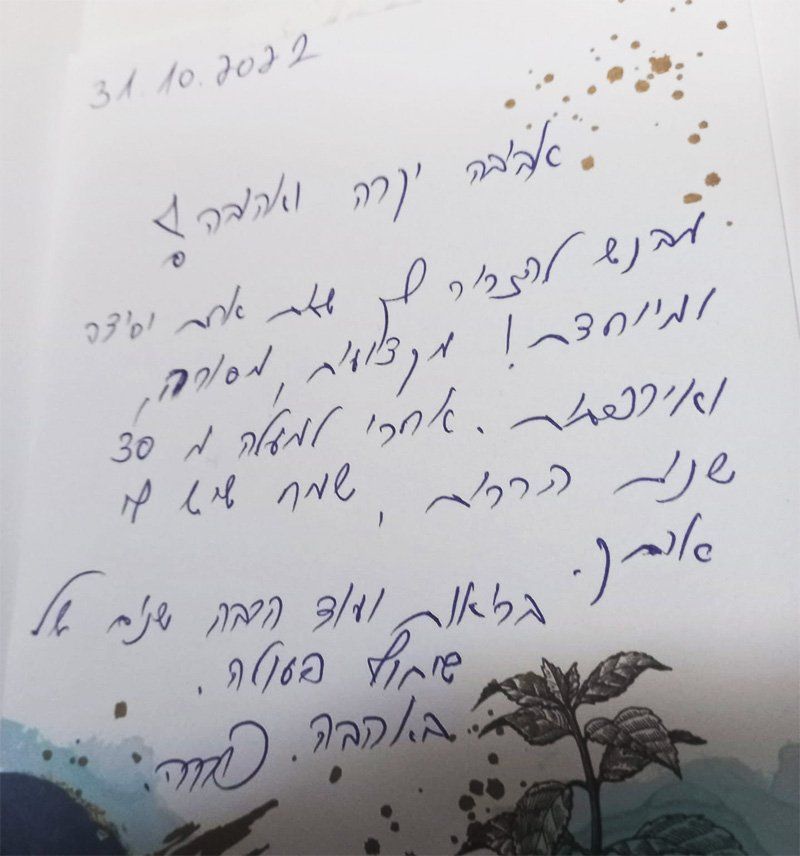 31.10.2022
אביבה יקרה ואהובה!
מבקש להגיד לך שאת אחת יחידה
ומיוחדת! מקצועית, מסורה,
ואיכפתית. אחרי למעלה מ 30
שנות הכרות, שמח שיש לי
אותך.
בריאות ועוד הרבה שנים של
שיתוף פעולה.
באהבה